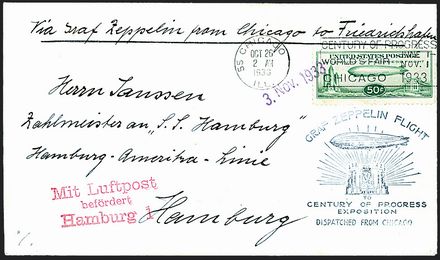 Via Graf Zeppelin from Chicago to Friedrichshafen
55 CHICAGO
OCT 26
2 AM
1933
ILL.
CENTURY OF PROGRESS
WORLD'S FAIR NOV. 1
CHICAGO 1933
UNITED STATES POSTAGE
50¢
3. Nov. 1933
Herrn Janssen
Zahlmeister an "S.S. Hamburg"
Hamburg-Amerika-Linie
Hamburg
Mit Luftpost
befördert
Hamburg 1
GRAF ZEPPELIN FLIGHT
TO
CENTURY OF PROGRESS
EXPOSITION
DISPATCHED FROM CHICAGO